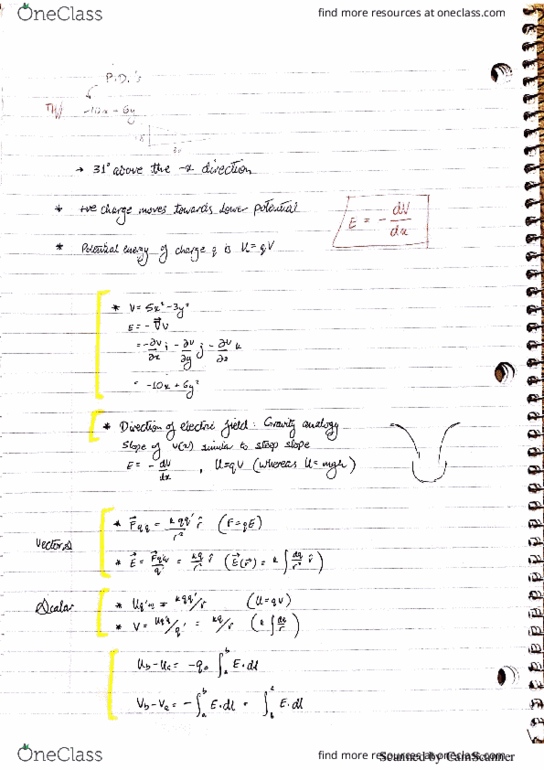 OneClass
find more resources at oneclass.com
P.D.'s
-10x - 6y
→ 31° above the -x direction
* +ve charge moves towards lower potential
E = - dV/dx
* Potential energy of charge q is U=qV
* V= 5x² -3y²
E= - ∇V
= -∂V/∂x i - ∂V/∂y j - ∂V/∂z k
= -10x + 6y
* Direction of electric field: Gravity analogy
Slope of V(x) similar to steep slope
E = - dV/dx , U=qV (whereas U=mgh)
Vectors
* F = kqq'/r² r̂ (F=qE)
* E = F/q' = kq/r² r̂ (E(r) = k ∫ dq/r² r̂)
Scalar
* U = kqq'/r (U=qV)
* V = U/q' = kq/r (k ∫ dq/r)
Ub-Ua = -q₀ ∫ₐᵇ E·dl
Vb-Va = - ∫ₐᵇ E·dl = ∫ E·dl
OneClass
find more resources at oneclass.com
Scanned by CamScanner